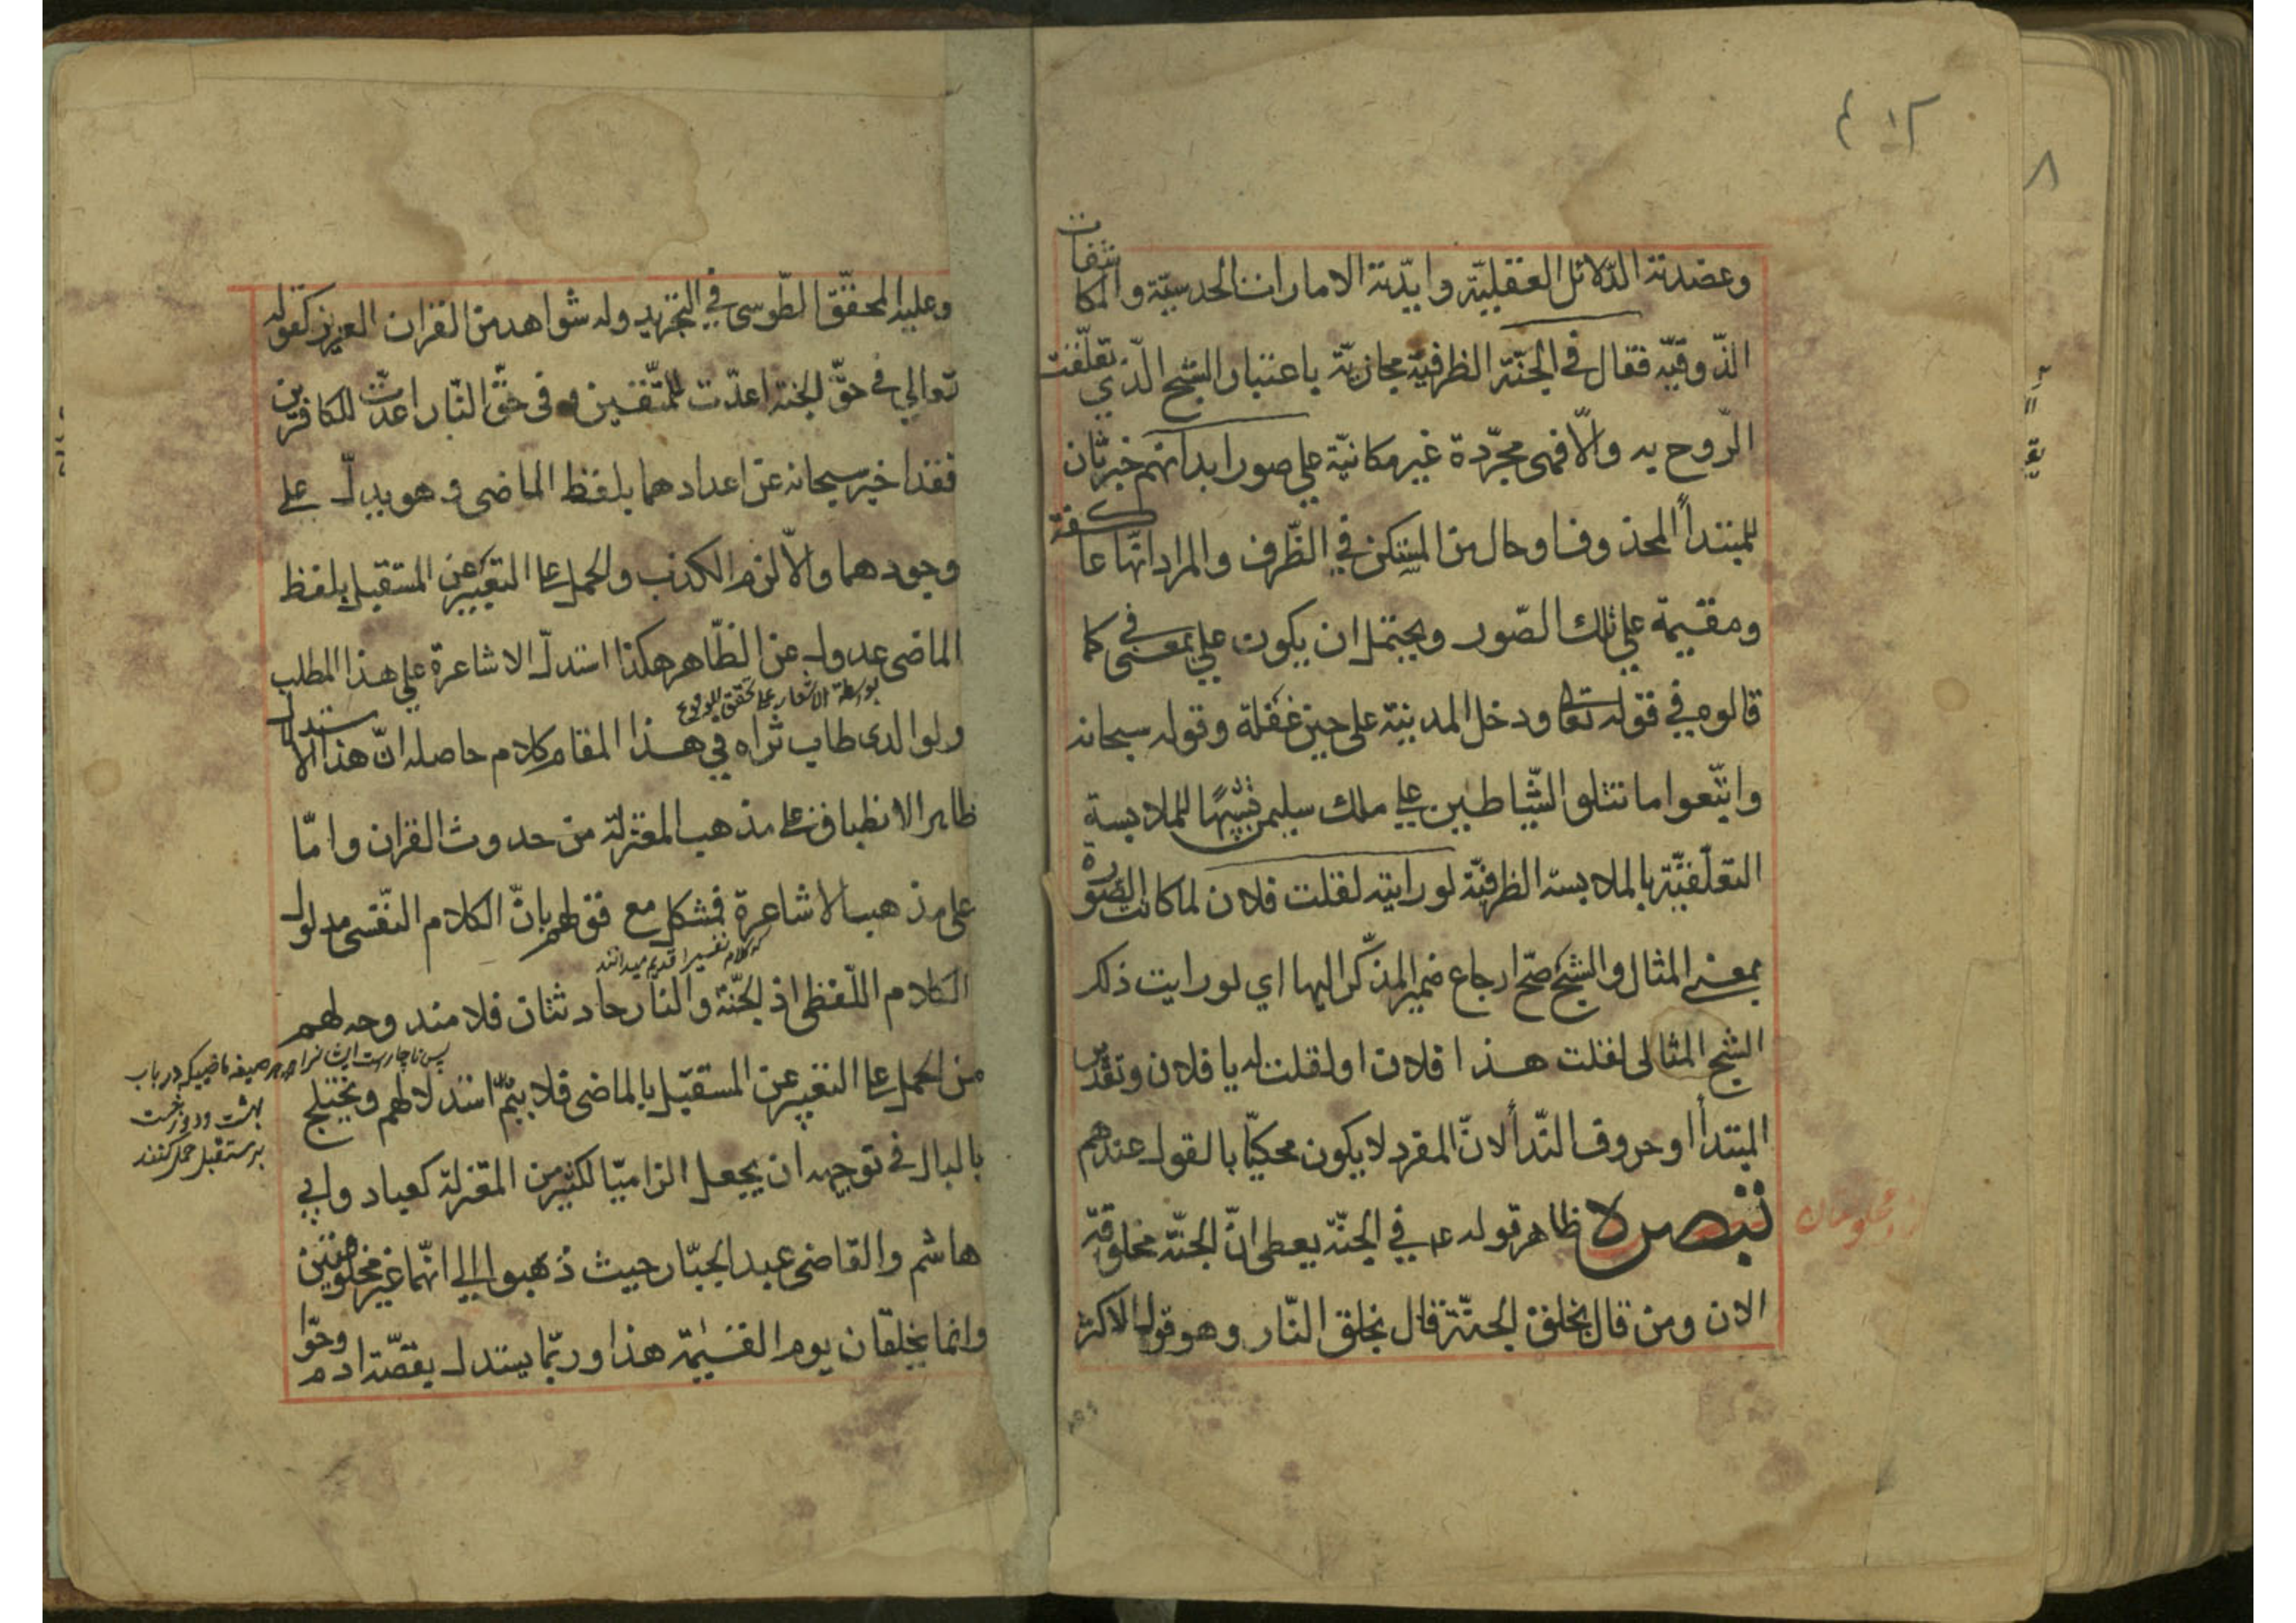 وعضدته الدّلائل العقليّة وايّدته الامارات الحدسيّة والمكاشفات
الذّوقيّه فقال في الجنّة الظرفيّة مجازيّة باعتبار الشبح الّذي تعلّقت
الرّوح به والّا فهى مجرّدة غير مكانيّة على صور ابدانهم خبر ثان
للمبتدأ المحذوف او حال من المستكن في الظّرف والمراد انّها عاكفة
ومقيمة على تلك الصّور ويحتمل ان يكون على بمعنى في كما
قالوه في قوله تعا ودخل المدينة على حين غفلة وقوله سبحانه
واتّبعوا ما تتلو الشّياطين على ملك سليمن تشبيهًا للملابسة
التعلّقيّة بالملابسة الظرفيّة لو رايته لقلت فلان لما كانت الصّورة
بمعنى المثال والشبح صحّ ارجاع ضمير المذكّر اليها اي لو رايت ذلك
الشبح المثالى لقلت هذا فلان او لقلت له يا فلان وتقدير
المبتدأ او حروف النّدأ لانّ المفرد لا يكون محكيّا بالقول عندهم
تبصرة ظاهر قوله ع في الجنّة يعطى انّ الجنّة مخلوقة
الان ومن قال بخلق الجنّة قال بخلق النّار وهو قول الاكثر
وعليه المحقّق الطّوسى في التجريد وله شواهد من القران العزيز كقوله
تعالي في حقّ الجنة اعدّت للمتّقين و في حقّ النّار اعدّت للكافرين
فقد اخبر سبحانه عن اعدادهما بلفظ الماضى و هو يدلّ على
وجودهما والّا لزم الكذب والحمل على التعبير عن المستقبل بلفظ
الماضى عدول عن الظّاهر هكذا استدلّ الاشاعرة على هذا المطلب
بواسطة الاشعار على تحقق الوقوع
ولوالدى طاب ثراه في هذا المقام كلام حاصله انّ هذا الاستدلال
ظاهر الانطباق على مذهب المعتزلة من حدوث القران وامّا
على مذهب الاشاعرة فمشكل مع قولهم بانّ الكلام النّفسى مدلول
كه كلام نفسيرا قديم ميدانند
الكلام اللّفظى اذ الجنّة والنّار حادثتان فلا مندوحة لهم
پس ناچارست ايشانرا صيغه ماضييكه در باب
بهشت ودوزخست
بر مستقبل حمل كنند
من الحمل على التعبير عن المستقبل بالماضى فلا يتمّ استدلالهم ويختلج
بالبال في توجيهه ان يجعل الزاميّا لكثير من المعتزلة كعباد وابي
هاشم والقاضى عبد الجبّار حيث ذهبوا الي انّهما غير مخلوقتين
وانما يخلقان يوم القيٰمة هذا وربّما يستدل بقصّة ادم وحوّا